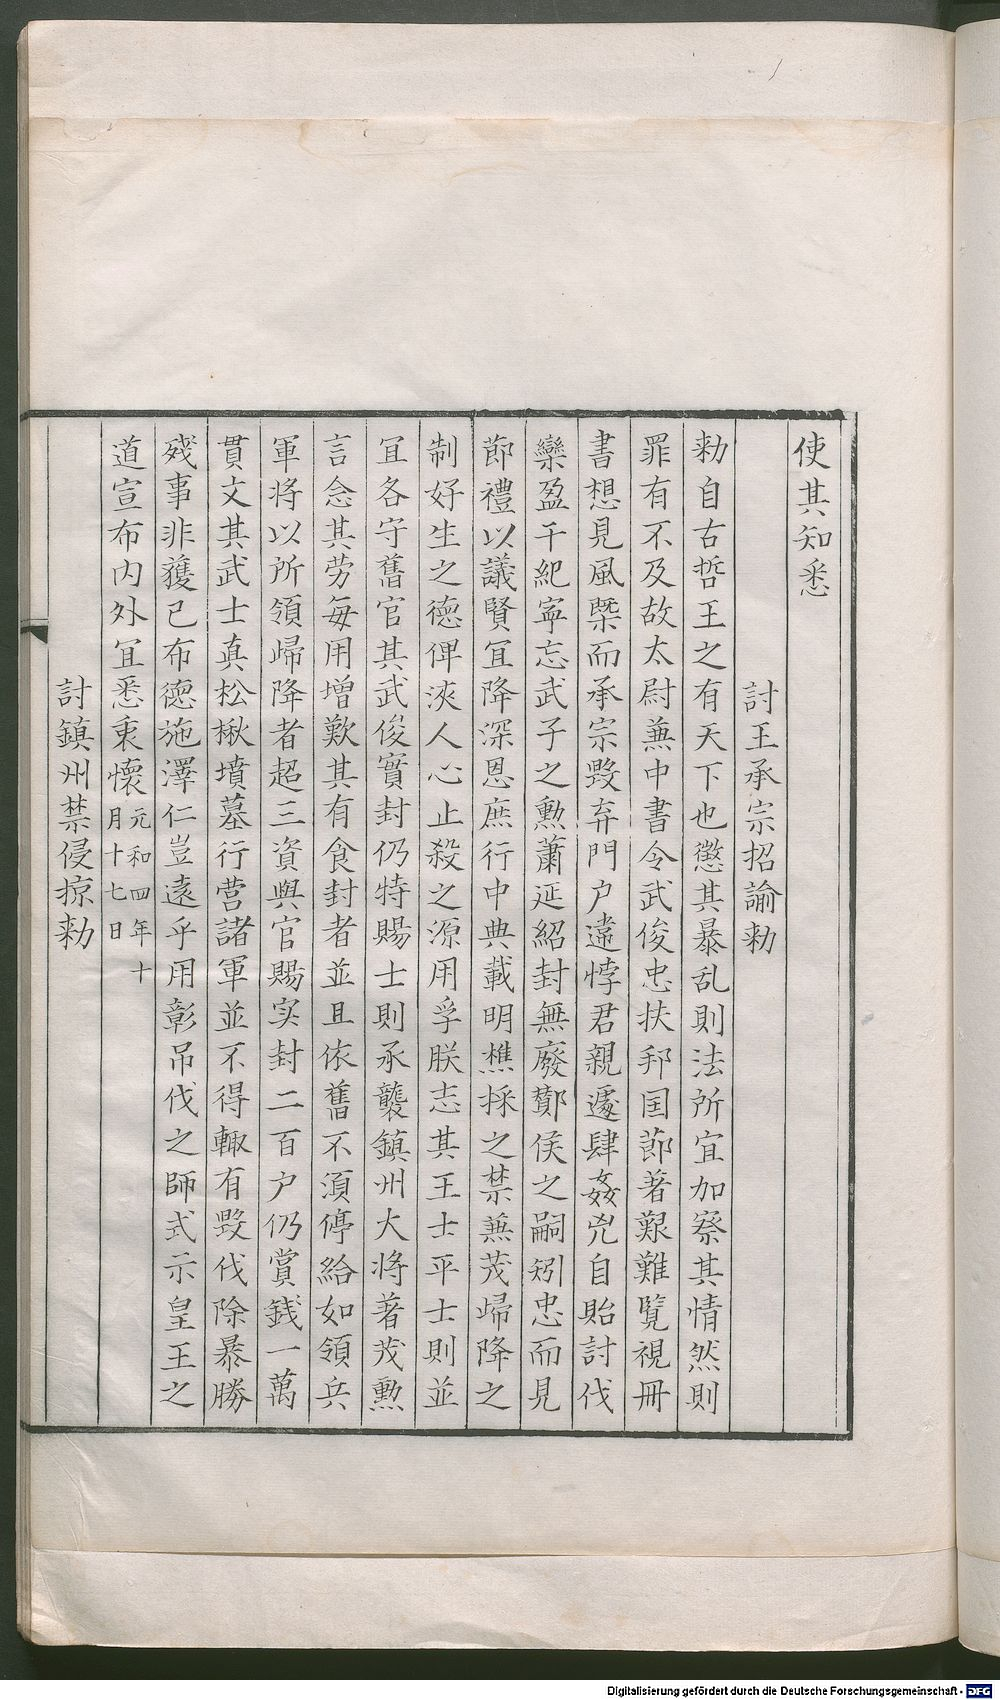 使其知悉
討王承宗招諭勑
勑自古哲王之有天下也懲其暴乱則法所宜加察其情然則
罪有不及故太尉兼中書令武俊忠扶邦国節著艱難覽視冊
書想見風槩而承宗毀弃門户違悖君親遽肆姦兇自貽討伐
欒盈干紀寧忘武子之勲蕭延紹封無廢酇侯之嗣矧忠而見
節禮以議賢宜降深恩庶行中典載明樵採之禁兼茂歸降之
制好生之德俾浹人心止殺之源用孚朕志其王士平士則並
宜各守舊官其武俊實封仍特賜士則承襲鎮州大将著茂勲
言念其劳每用增歎其有食封者並且依舊不須停給如領兵
軍将以所領歸降者超三資與官賜实封二百户仍賞錢一萬
貫文其武士真松楸墳墓行营諸軍並不得輙有毀伐除暴勝
殘事非獲已布德施澤仁豈遠乎用彰吊伐之師式示皇王之
道宣布内外宜悉朿懷元和四年十
月十七日
討鎮州禁侵掠勑
Digitalisierung gefördert durch die Deutsche Forschungsgemeinschaft - DFG